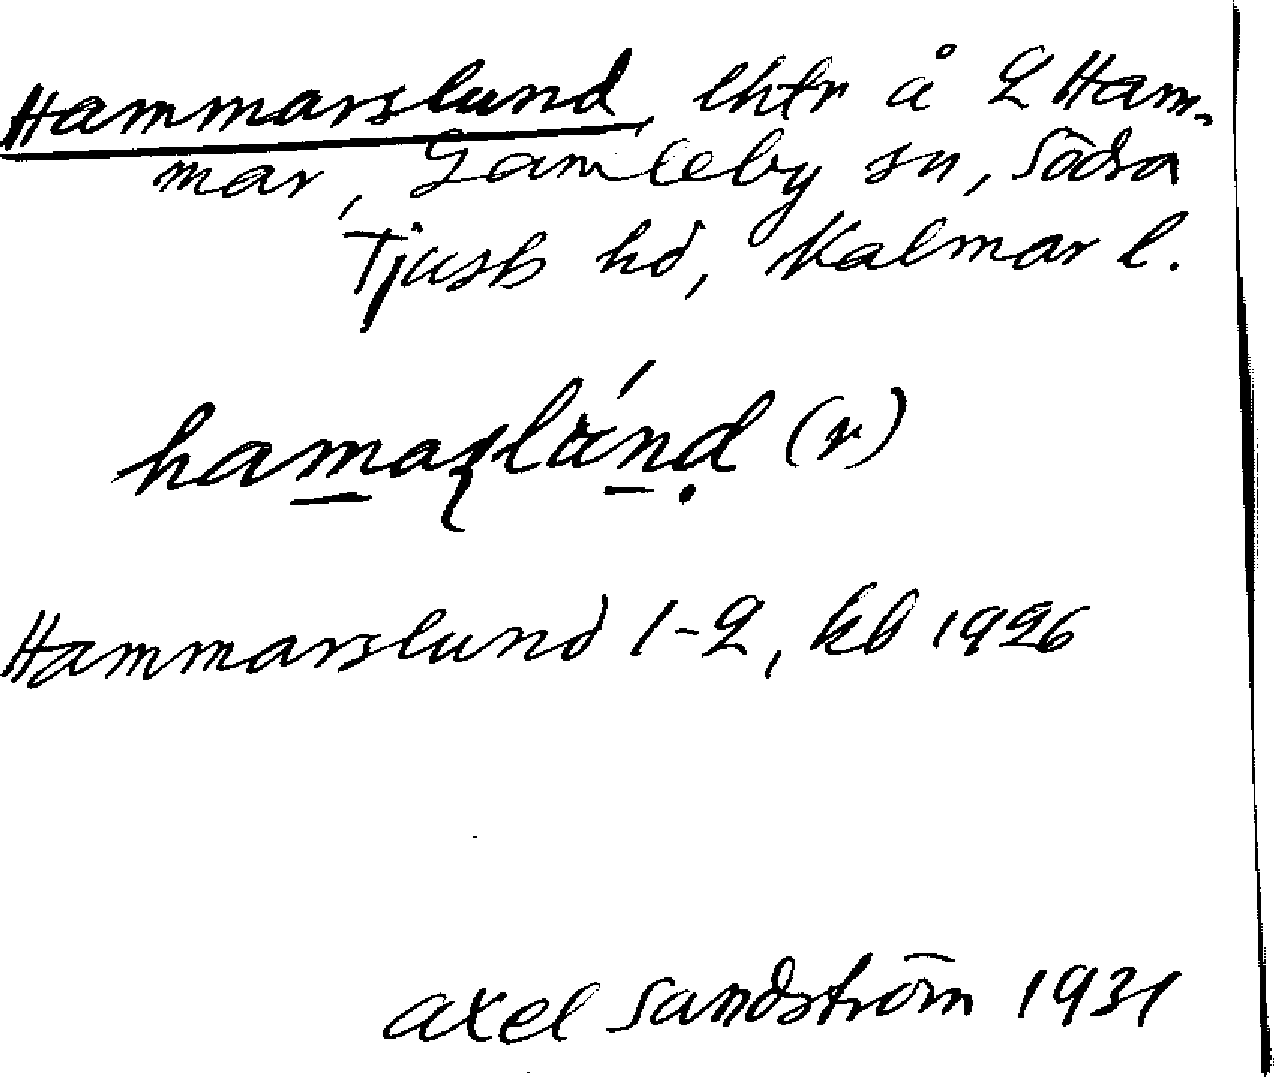 Hammarslund, lhtr å L Ham-
mar, Gamleby sn, Södra
Tjusts hd, Kalmar l.
hamaʂlúnd (r)
Hammarslund 1-2, kb 1926
Axel Sandström 1931